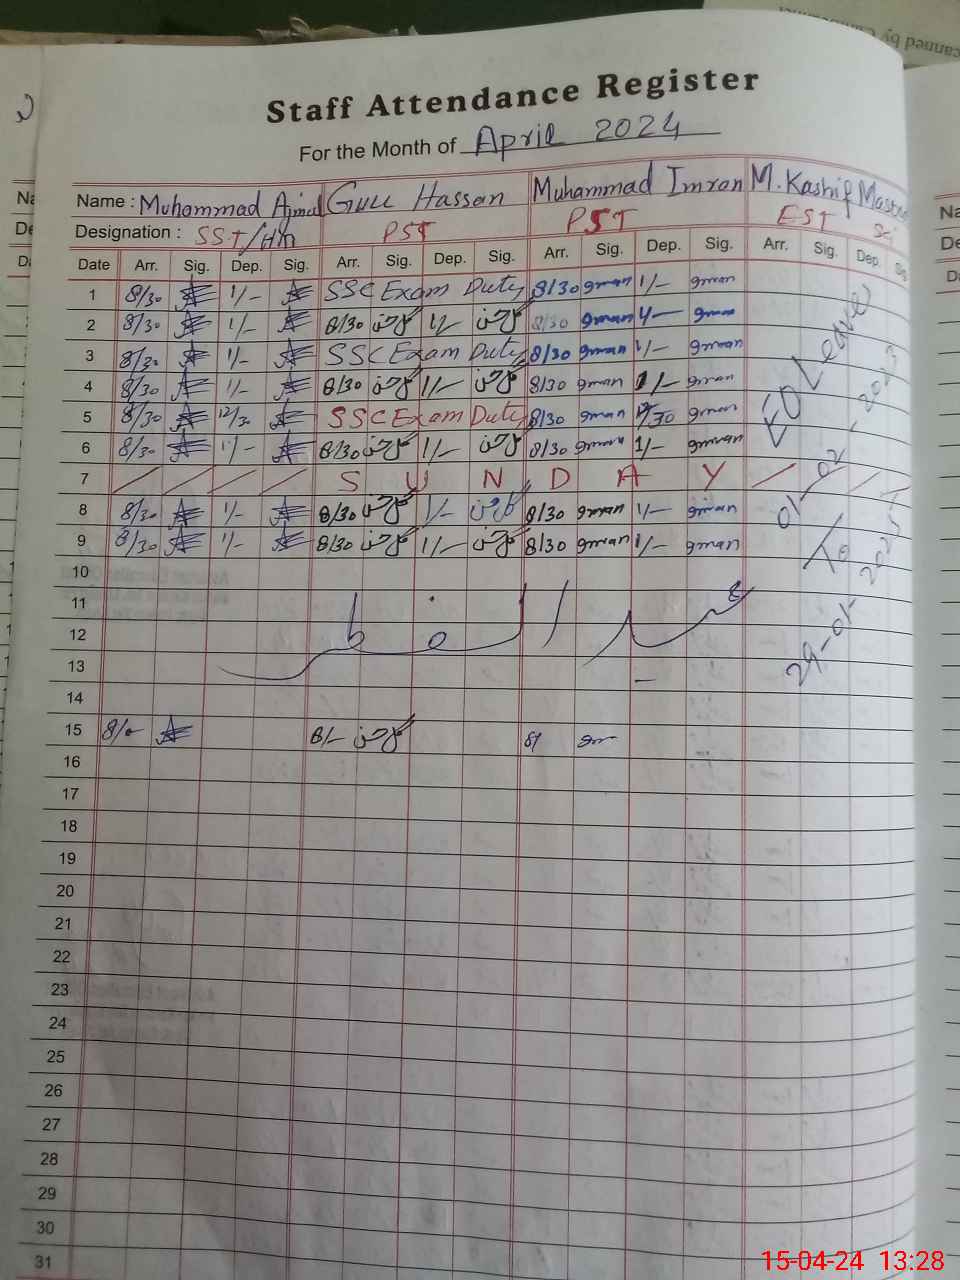 Staff Attendance Register
For the Month of April 2024
Name : Muhammad Ajmal Gull Hassan Muhammad Imran M. Kashif
Designation : SST/HM PST PST EST Sci
Date Arr. Sig. Dep. Sig. Arr. Sig. Dep. Sig. Arr. Sig. Dep. Sig. Arr. Sig. Dep. Sig.
1 8/30 1/- SSC Exam Duty 8/30 gman 1/- gman
2 8/30 1/- 8/30 گل حسن 1/- گل حسن 8/30 gman 1/- gman
3 8/30 1/- SSC Exam Duty 8/30 gman 1/- gman
4 8/30 1/- 8/30 گل حسن 1/- گل حسن 8/30 gman 1/- gman
5 8/30 12/30 SSC Exam Duty 8/30 gman 12/30 gman
6 8/30 1/- 8/30 گل حسن 1/- گل حسن 8/30 gman 1/- gman
7 SUNDAY
8 8/30 1/- 8/30 گل حسن 1/- گل حسن 8/30 gman 1/- gman
9 8/30 1/- 8/30 گل حسن 1/- گل حسن 8/30 gman 1/- gman
EO Leave
01-02-2023
To
29-01-2025
10
11
12
عید الفطر
13
14
15 8/- 8/- گل حسن 8/
16
17
18
19
20
21
22
23
24
25
26
27
28
29
30
31
15-04-24 13:28